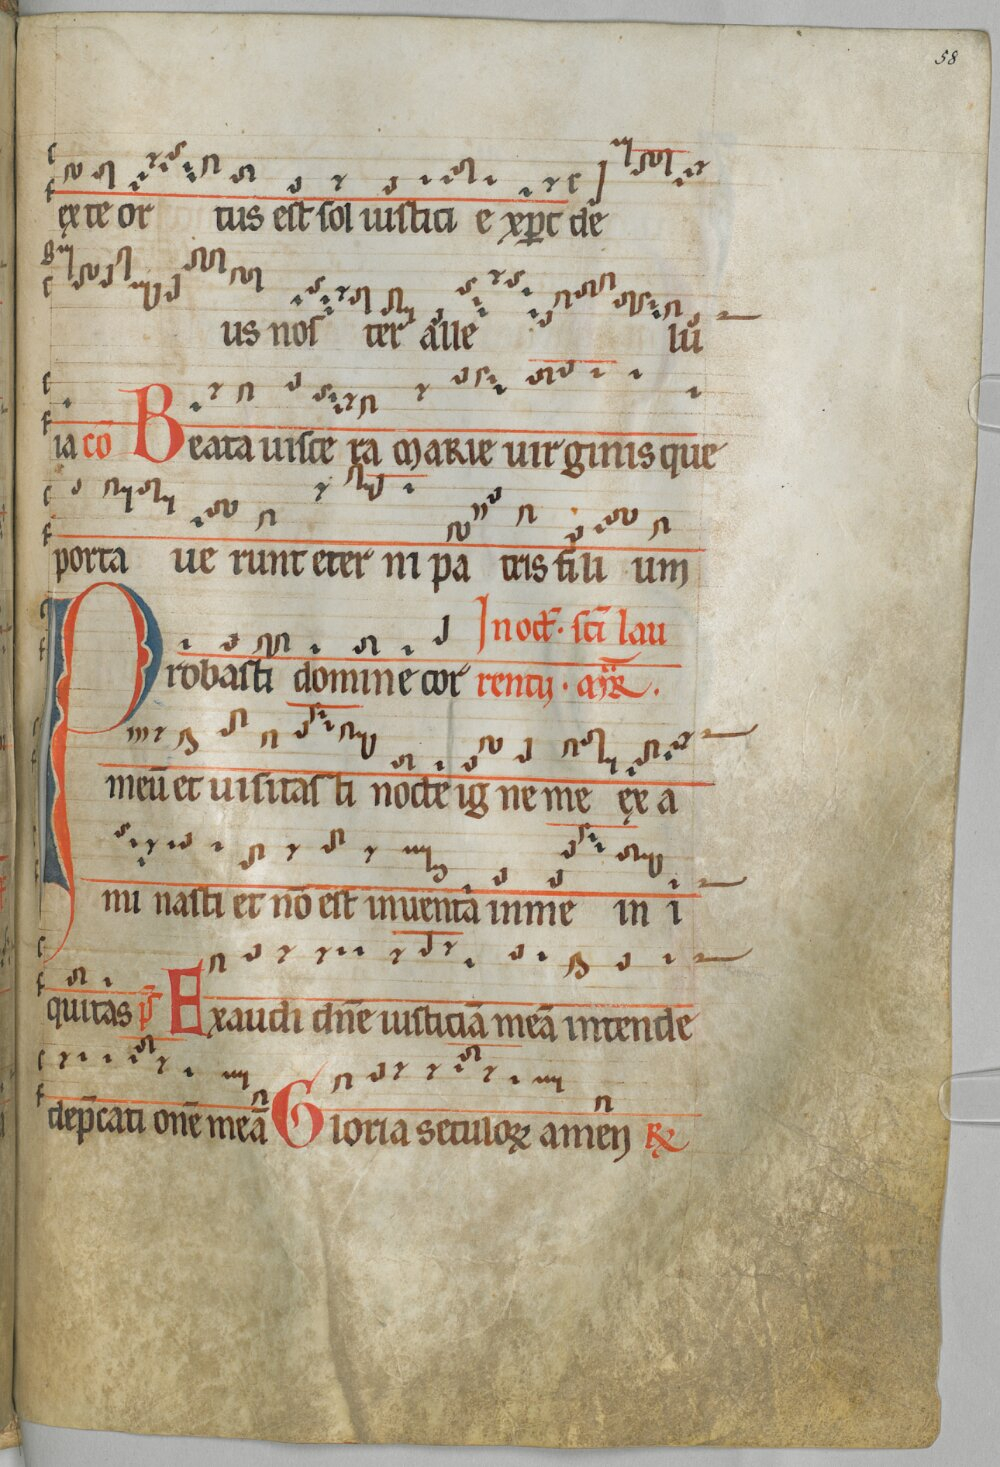 58
ex te or tus est sol iusticı e xp̄c de
us nos ter alle lu
ia cō Beata uisce ra marie uirginis que
porta ue runt eter ni pa tris fili um
In oct̄. sc̄i lau
Probasti domine cor rentij. mr̄.
meū et uisitas ti nocte ig ne me ex a
mi nasti et nō est inuenta in me in i
quitas p̄s Exaudi dn̄e iusticiā meā intende
dep̄cati onē meā Gloria seculoꝝ amen ℟